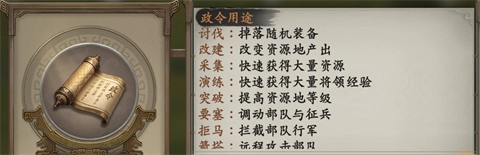 政令用途
讨伐：掉落随机装备
改建：改变资源地产出
采集：快速获得大量资源
演练：快速获得大量将领经验
突破：提高资源地等级
要塞：调动部队与征兵
拒马：拦截部队行军
箭塔：远程攻击部队
政令